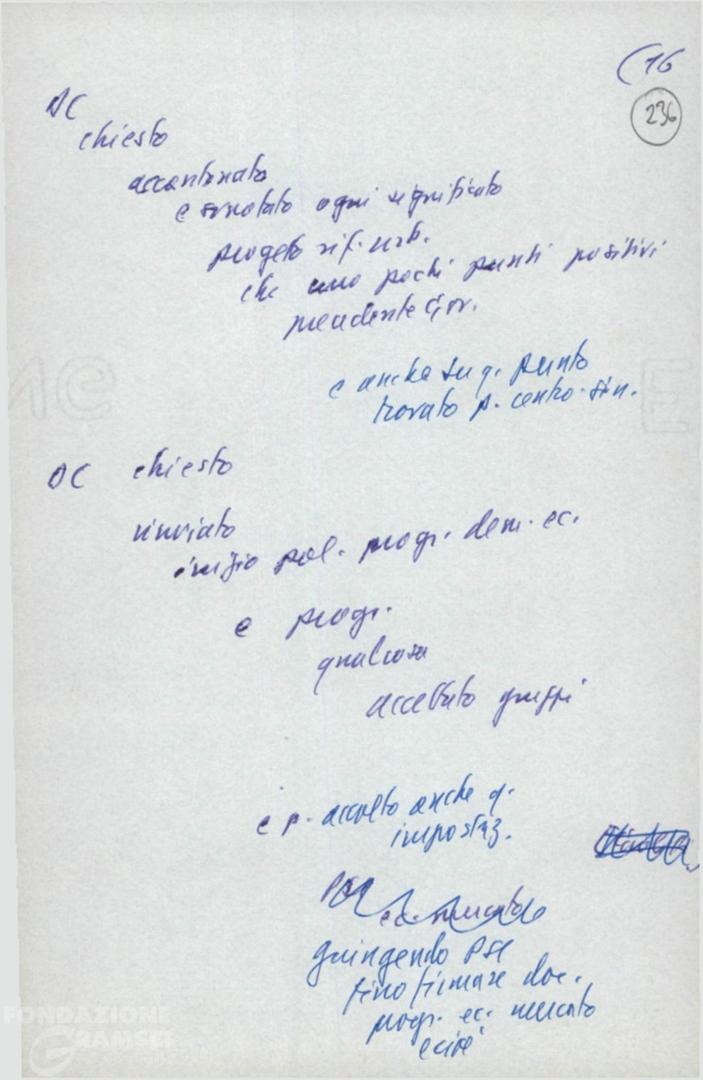 (16
236
DC
chiesto
accantonato
e svuotato ogni significato
progetto rif. urb.
che uno pochi punti positivi
precedente gov.
e anche su q. punto
trovato p. centro-sin.
DC chiesto
rinviato
inizio pol. progr. dem. ec.
e progr.
qualcosa
accettato gruppi
e p. accolto anche q.
impostaz.
ec. mercato
giungendo PSI
fino firmare doc.
progr. ec. mercato
cioè
FONDAZIONE
GRAMSCI